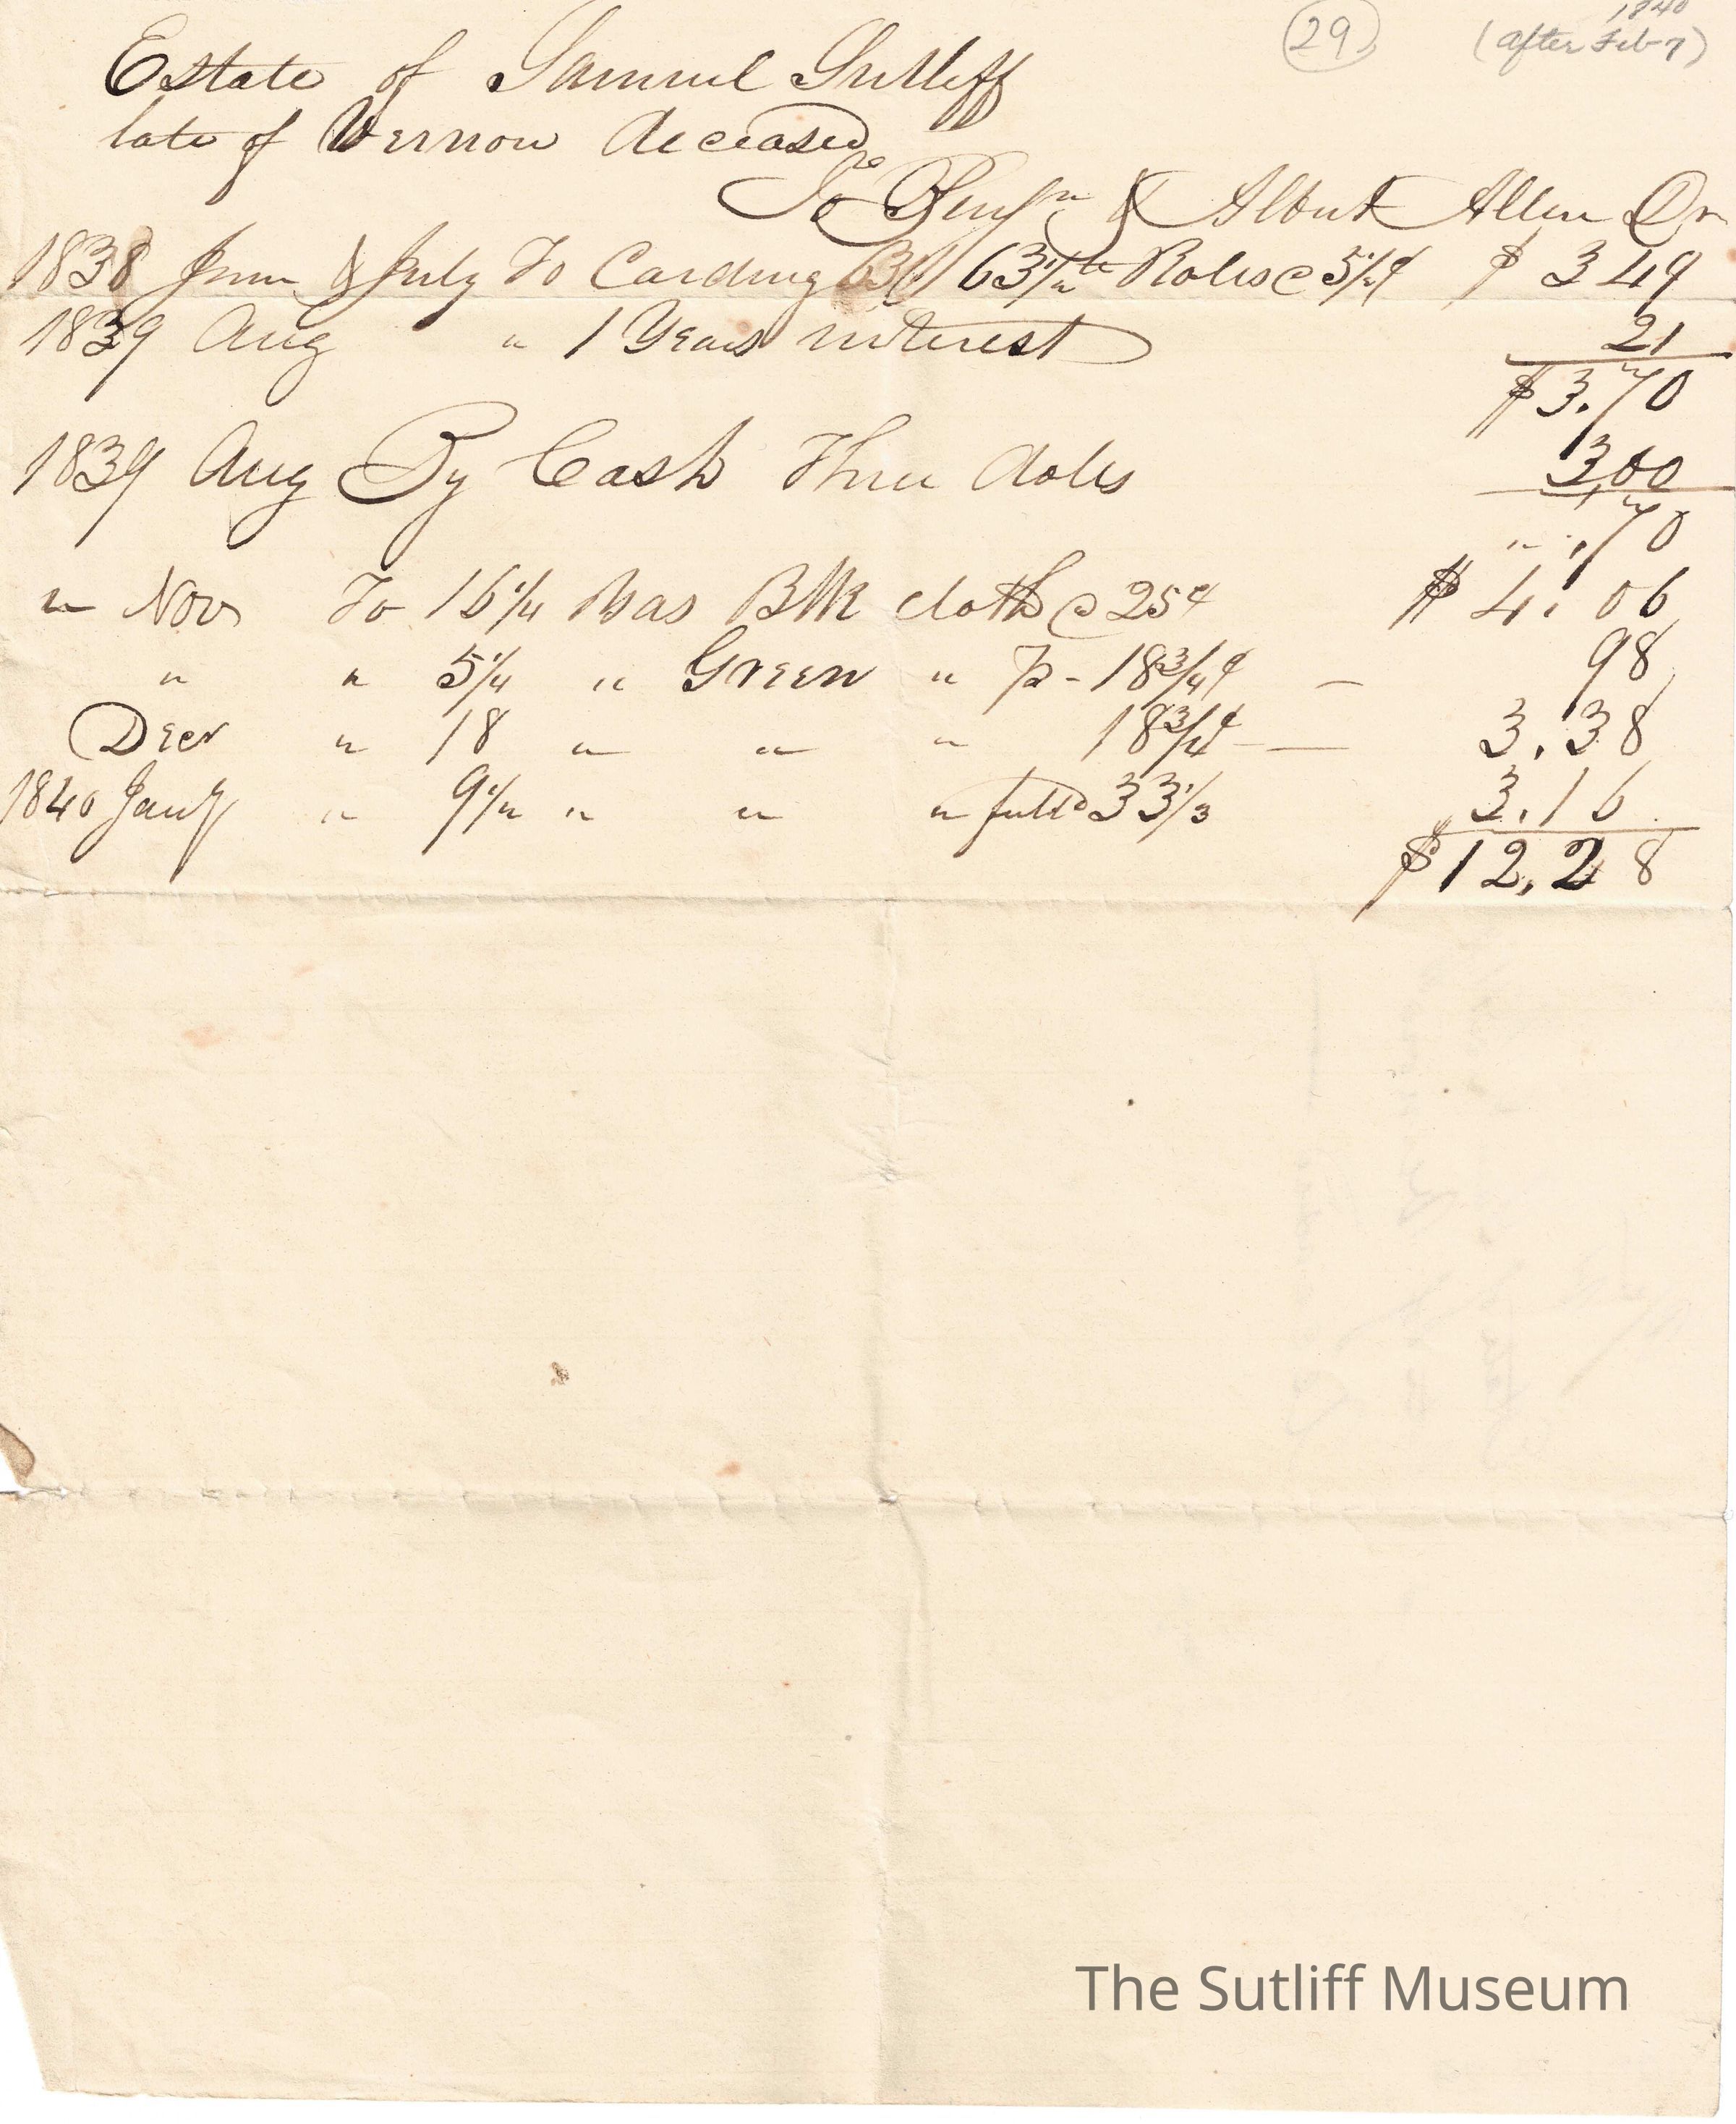 29
1840
(after Feb-7)
Estate of Samuel Sutleff
late of Vernon deceased
To Benjn & Albert Allen Dr
1838 June & July To Carding 63 1/2 lb Roles @ 5 1/2 ¢ $ 3 49
1839 Aug " 1 Years interest 21
$3.70
1839 Aug By Cash Three dols 3,00
" .70
" Novr To 16 1/4 Yds Blk cloth @ 25¢ $ 4.06
" " 5 1/4 " Green " 18 3/4 ¢ — 98
Decr " 18 " " " 18 3/4 ¢ — 3.38
1840 Jany " 9 1/2 " " " fulld 33 1/3 3.16
$12,28
The Sutliff Museum